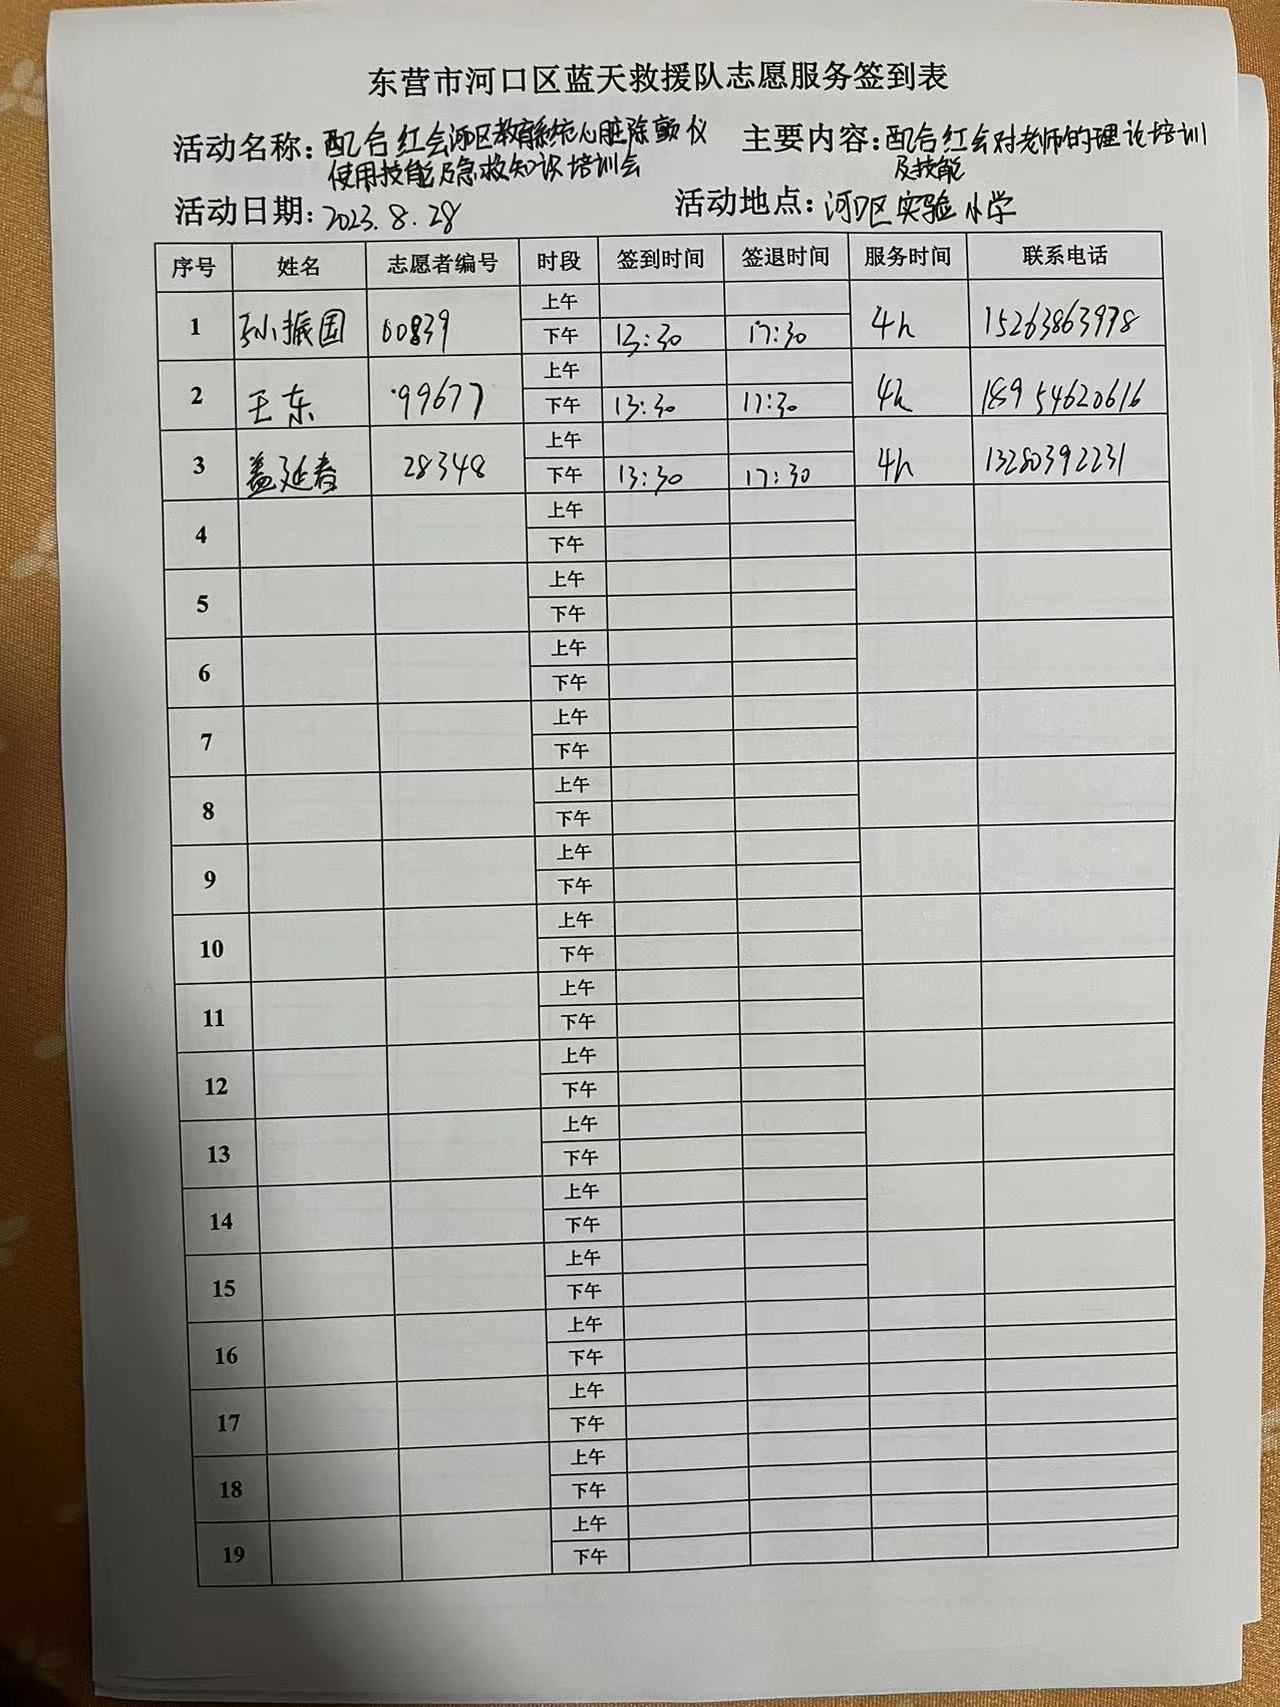 东营市河口区蓝天救援队志愿服务签到表
活动名称：配合红会河区教育系统心脏除颤仪 主要内容：配合红会对老师的理论培训
使用技能及急救知识培训会 及技能
活动日期：2023.8.28 活动地点：河口区实验小学
序号 姓名 志愿者编号 时段 签到时间 签退时间 服务时间 联系电话
上午
1 孙振国 00839 下午 13:30 17:30 4h 15263863978
上午
2 王东 99677 下午 13:30 17:30 4h 18954620616
上午
3 盖延春 28348 下午 13:30 17:30 4h 13280392231
上午
4 下午
上午
5 下午
上午
6 下午
上午
7 下午
上午
8 下午
上午
9 下午
上午
10 下午
上午
11 下午
上午
12 下午
上午
13 下午
上午
14 下午
上午
15 下午
上午
16 下午
上午
17 下午
上午
18 下午
上午
19 下午